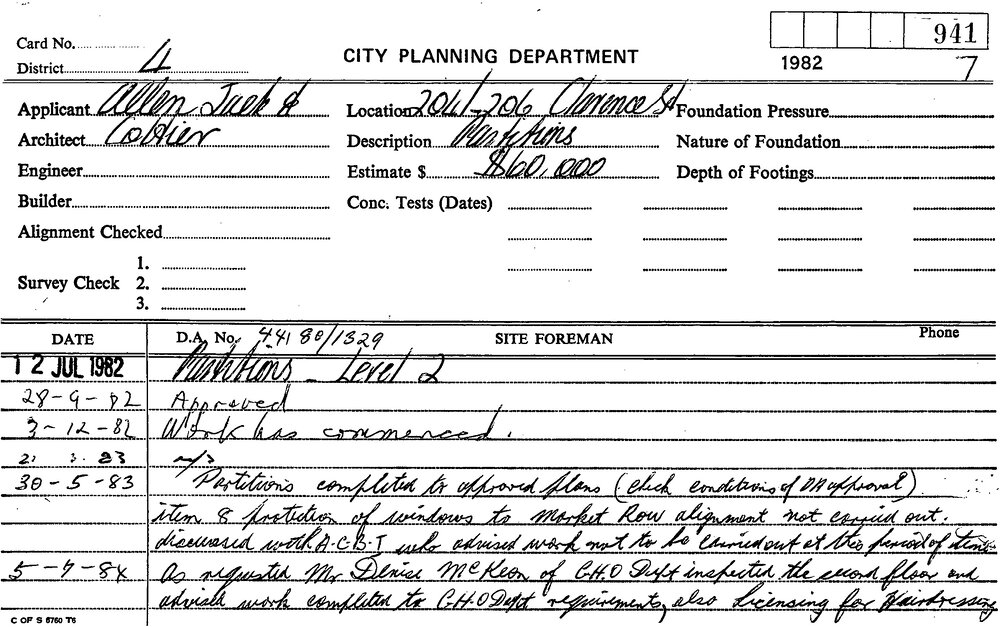 Card No.
941
District 4
CITY PLANNING DEPARTMENT
1982
7
Applicant Allen Jack &
Location 204-206 Clarence St
Foundation Pressure
Architect Cottier
Description Partitions
Nature of Foundation
Engineer
Estimate $ $60,000
Depth of Footings
Builder
Conc. Tests (Dates)
Alignment Checked
Survey Check
1.
2.
3.
DATE
D.A. No. 44 80/1329
SITE FOREMAN
Phone
12 JUL 1982 Partitions - Level 2
28-9-82 Approved
3-12-82 Work has commenced.
3.83 n/s
30-5-83 Partitions completed to approved plans (check conditions of DA approval)
item 8 protection of windows to Market Row alignment not carried out.
discussed with A.C.B.I who advised work not to be carried out at this period of time
5-7-84 As requested Mr Denise McKeon of C.H.O Dept inspected the second floor and
advised work completed to C.H.O Dept requirements, also Licensing for Hairdressing
C OF S 6760 T6